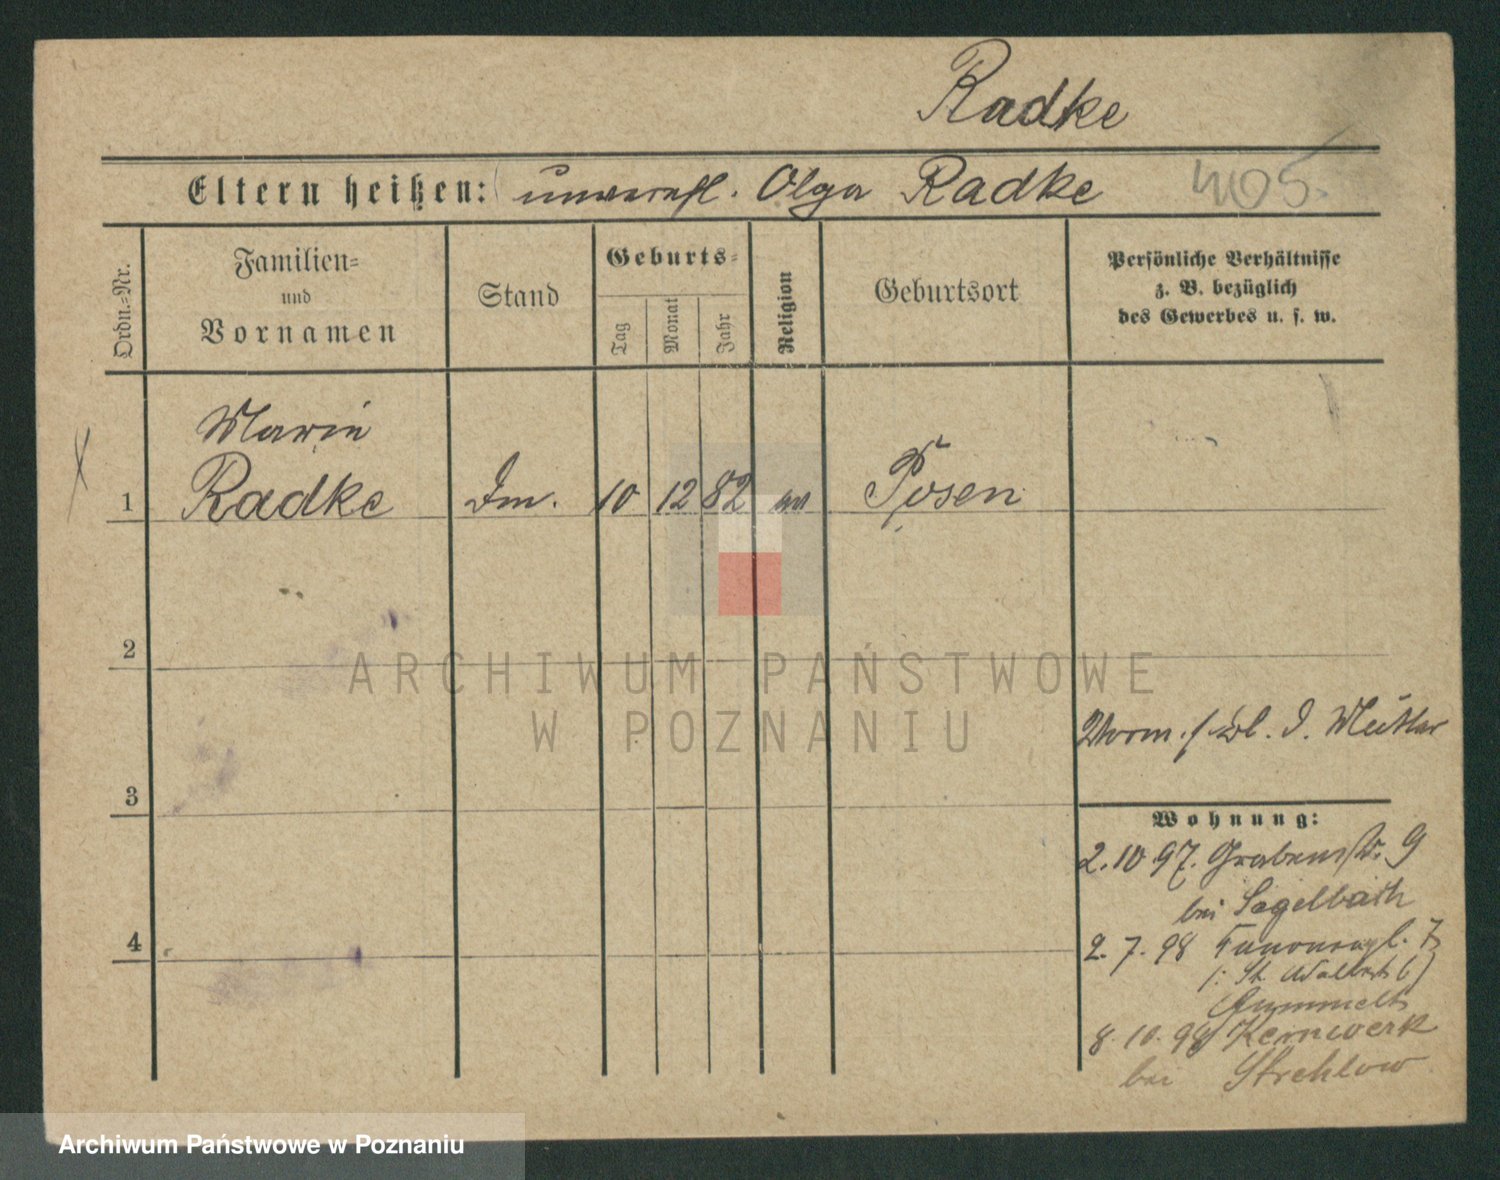 Radke
Eltern heißen: unverehl. Olga Radke 405.
Ordn.-Nr.
Familien-
und
Vornamen
Stand
Geburts-
Tag
Monat
Jahr
Religion
Geburtsort
Persönliche Verhältnisse
z. B. bezüglich
des Gewerbes u. s. w.
Marie
1 Radke 10 12 82 Posen
2
3
4
ARCHIWUM PAŃSTWOWE
W POZNANIU
Vorm. d.
Wohnung:
2.10.97. Grabenstr. 9
bei
2.7.98 7
St. Adalbert
Gummelt
8.10.98 Kernwerk
bei Strehlow
Archiwum Państwowe w Poznaniu